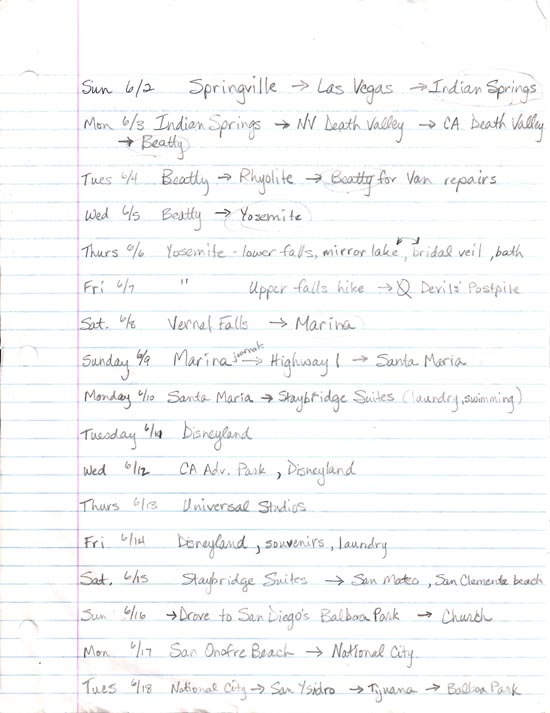 Sun 6/2 Springville → Las Vegas → Indian Springs
Mon 6/3 Indian Springs → NV Death Valley → CA Death Valley
→ Beatty
Tues 6/4 Beatty → Rhyolite → Beatty for Van repairs
Wed 6/5 Beatty → Yosemite
Thurs 6/6 Yosemite - lower falls, mirror lake, bridal veil, bath
Fri 6/7 " Upper falls hike → Devils' Postpile
Sat. 6/8 Vernel Falls → Marina
Sunday 6/9 Marina journals → Highway 1 → Santa Maria
Monday 6/10 Santa Maria → Staybridge Suites (laundry, swimming)
Tuesday 6/11 Disneyland
Wed 6/12 CA Adv. Park, Disneyland
Thurs 6/13 Universal Studios
Fri 6/14 Disneyland, souvenirs, laundry
Sat. 6/15 Staybridge Suites → San Mateo, San Clemente beach
Sun 6/16 → Drove to San Diego's Balboa Park → Church
Mon 6/17 San Onofre Beach → National City.
Tues 6/18 National City → San Ysidro → Tijuana → Balboa Park